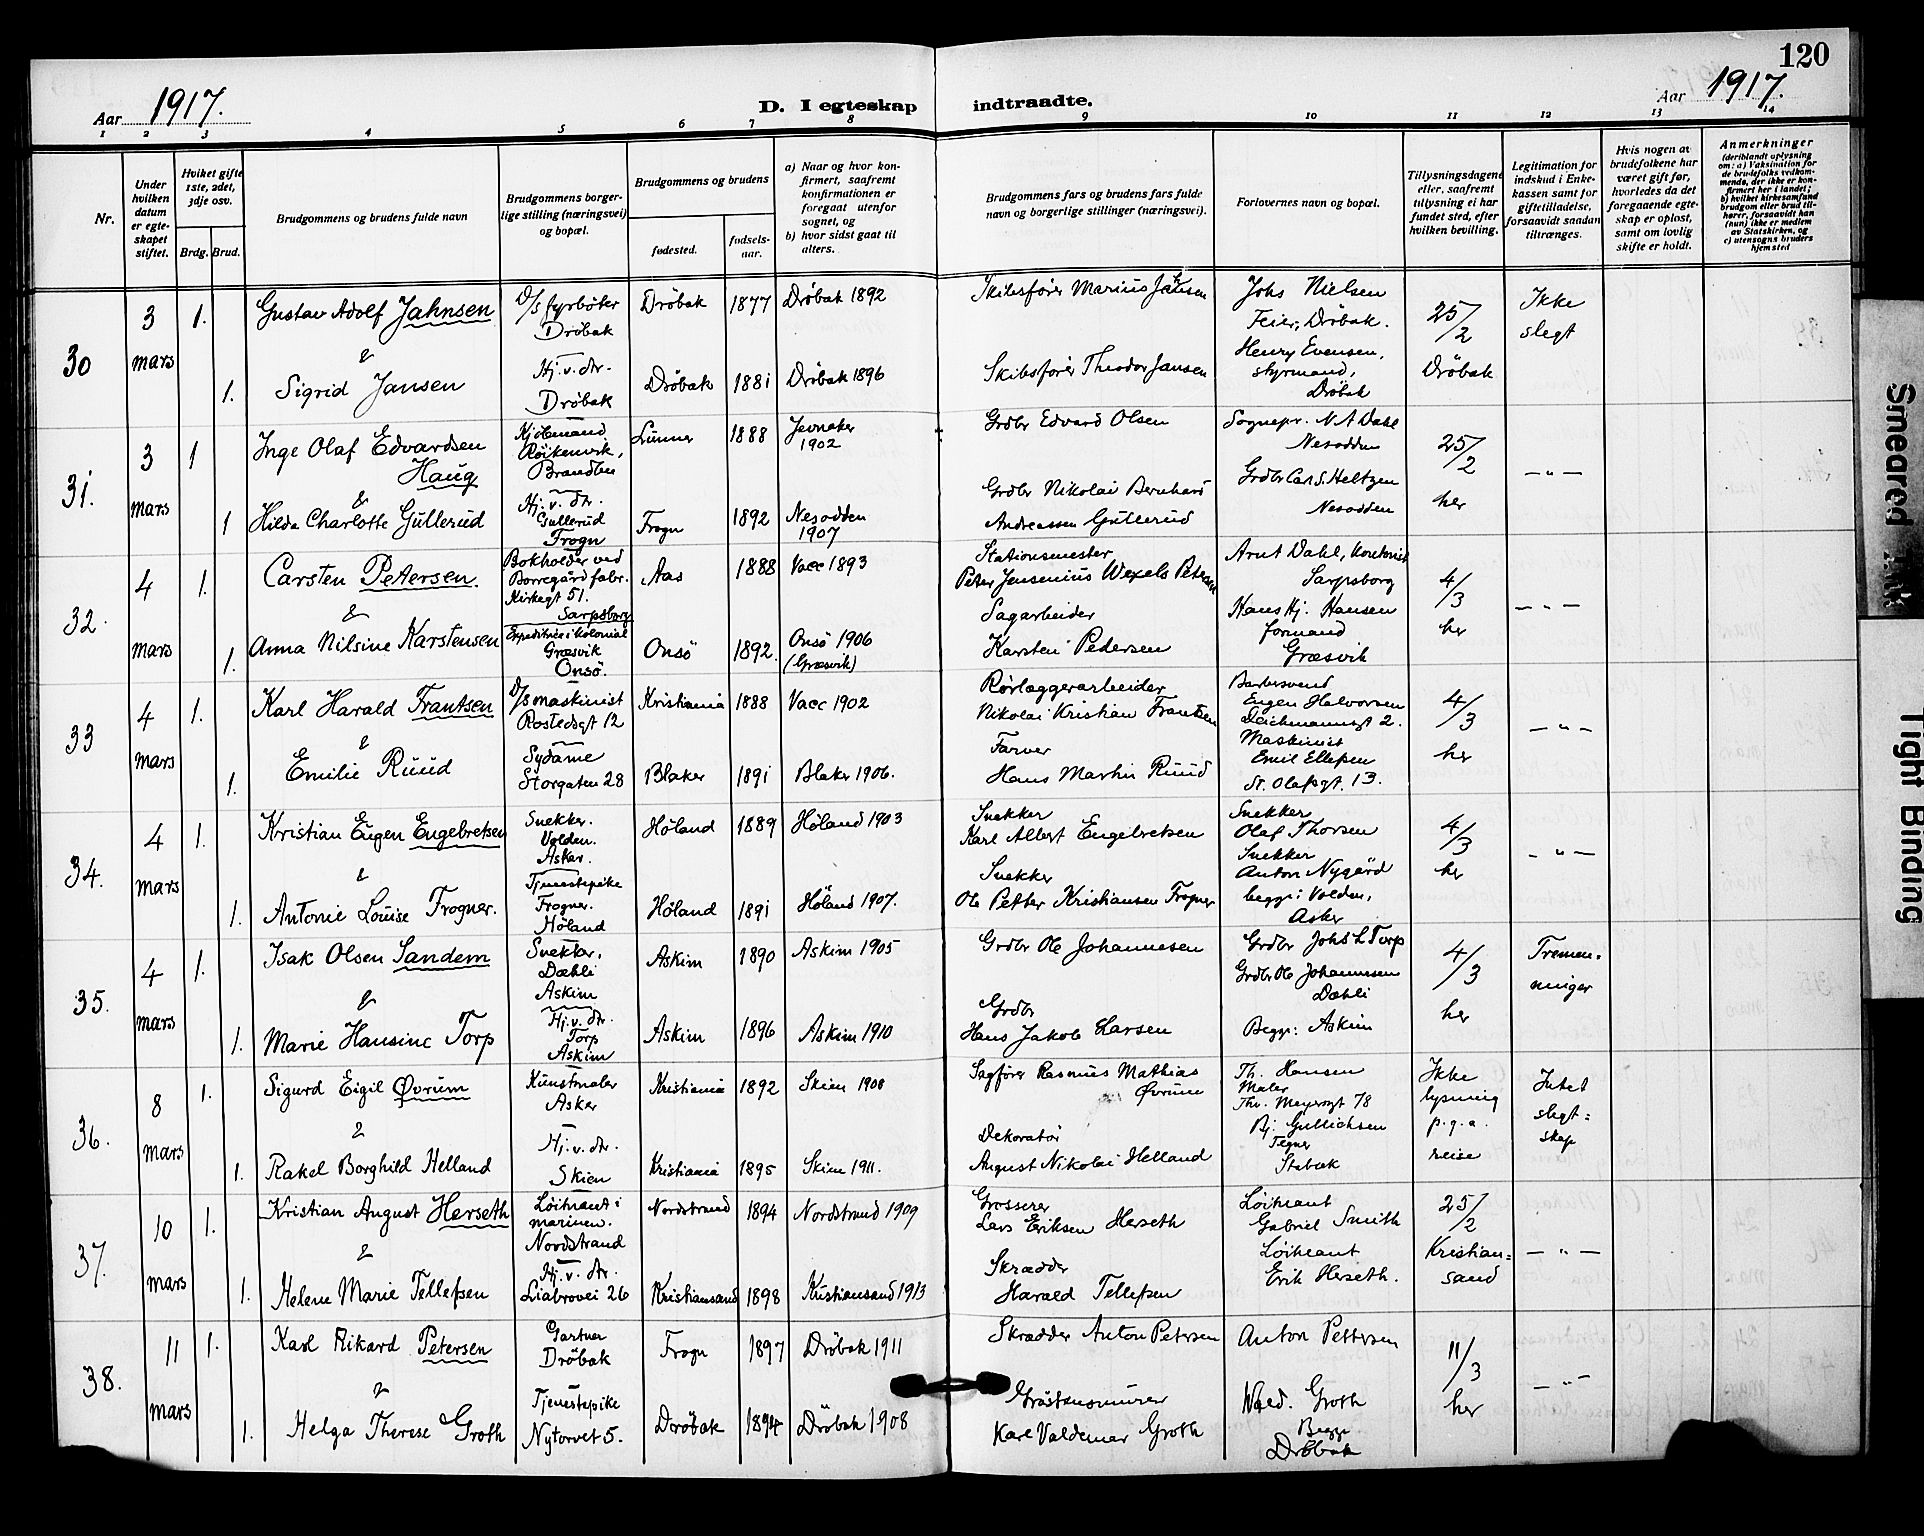 120
Aar 1917.
D. I egteskap indtraadte.
Aar 1917.
1 2 3 4 5 6 7 8 9 10 11 12 13 14
Nr.
Under hvilken datum er egteskapet stiftet.
Hvilket gifte 1ste, 2det, 3dje osv.
Brdg. Brud.
Brudgommens og brudens fulde navn
Brudgommens borgerlige stilling (næringsvei) og bopæl.
Brudgommens og brudens
fødested.
fødselsaar.
a) Naar og hvor konfirmert, saafremt konfirmationen er foregaat utenfor sognet, og
b) hvor sidst gaat til alters.
Brudgommens fars og brudens fars fulde navn og borgerlige stillinger (næringsvei).
Forlovernes navn og bopæl.
Tillysningsdagene eller, saafremt tillysning ei har fundet sted, efter hvilken bevilling.
Legitimation for indskud i Enkekassen samt for giftetilladelse, forsaavidt saadan tiltrænges.
Hvis nogen av brudefolkene har været gift før, hvorledes da det foregaaende egteskap er opløst, samt om lovlig skifte er holdt.
Anmerkninger
(deriblandt oplysning om: a) Vaksination for de brudefolks vedkommende, der ikke er konfirmert her i landet; b) hvilket kirkesamfund brudgom eller brud tilhører, forsaavidt han (hun) ikke er medlem av Statskirken, og c) utensogns bruders hjemsted
30
3 mars
1.
Gustav Adolf Jahnsen
D/s fyrbøter
Drøbak
Drøbak 1877 Drøbak 1892
Skibsfører Marius Jahnsen
Johs Nielsen
Feier, Drøbak.
25/2
Drøbak
Ikke slegt
&
1.
Sigrid Jansen
Hj. v. dtr.
Drøbak
Drøbak 1881 Drøbak 1896
Skibsfører Theodor Jansen
Henry Evensen,
styrmand,
Drøbak
31.
3 mars
1
Inge Olaf Edvardsen
Haug
Kjøbmand
Røikenvik,
Brandbu
Lunner 1888 Jevnaker 1902
Grdbr Edvard Olsen
Sognepr. N A Dahl
Nesodden
25/2
her
— " —
&
1
Hilda Charlotte Gullerud
Hj. v. dtr.
Gullerud
Frogn
Frogn 1892 Nesodden 1907
Grdbr Nikolai Bernhard
Andreassen Gullerud
Grdbr Carl S. Heltzen
Nesodden
32.
4 mars
1.
Carsten Petersen.
Bokholder ved
Borregård fabr.
Kirkegt 51.
Sarpsborg
Aas 1888 Vacc 1893
Stationsmester
Peter Jensenius Wexels Petersen
Arnt Dahl, kontorist
Sarpsborg
4/3
her
— " —
&
1.
Anna Nilsine Karstensen
Expeditrice i kolonial
Græsvik
Onsø.
Onsø 1892. Onsø 1906
(Græsvik)
Sagarbeider
Karsten Pedersen
Hans Hj. Hansen
formand
Græsvik
33
4 mars
1.
Karl Harald Frantsen
D/s maskinist
Rostedsgt 12
Kristiania 1888 Vacc 1902
Rørlæggerarbeider
Nikolai Kristian Frantsen
Barbersvend
Eugen Halvorsen
Deichmannsgt 2.
4/3
her
— " —
&
1.
Emilie Ruud
Sydame
Storgaten 28
Blaker 1891 Blaker 1906.
Farver
Hans Martin Ruud
Maskinist
Emil Ellefsen
St. Olafsgt. 13.
34.
4 mars
1.
Kristian Eugen Engebretsen
Snekker.
Volden.
Asker.
Høland 1889 Høland 1903
Snekker
Karl Albert Engebretsen
Snekker
Olaf Thorsen
4/3
her
— " —
&
1.
Antonie Louise Frogner.
Tjenestepike
Frogner.
Høland
Høland 1891 Høland 1907.
Snekker
Ole Petter Kristiansen Frogner
Snekker
Anton Nygård
begge: Volden,
Asker
35.
4 mars
1.
Isak Olsen Sandem
Snekker.
Dæhli
Askim
Askim 1890 Askim 1905
Grdbr Ole Johannesen
Grdbr Johs L Torp
4/3
her
Tremenninger
&
1.
Marie Hansine Torp
Hj. v. dtr.
Torp
Askim
Askim 1896 Askim 1910
Grdbr
Hans Jakob Larsen
Grdbr Ole Johannesen
Dæhli
Begge: Askim
36.
8 mars
1.
Sigurd Eigil Øvrum
Kunstmaler
Asker
Kristiania 1892 Skien 1908
Sagfører Rasmus Mathias
Øvrum
Th. Hansen
Maler
Thv. Meyersgt 78
Ikke lysning p.g.a. reise
Intet slegt=skap
&
1.
Rakel Borghild Helland
Hj. v. dtr.
Skien
Kristiania 1895 Skien 1911.
Dekoratør
August Nikolai Helland
Bj. Gullichsen
Tegner
Stabæk
37.
10 mars
1.
Kristian August Herseth
Løitnant i
marinen.
Nordstrand
Nordstrand 1894 Nordstrand 1909
Grosserer
Lars Eriksen Herseth
Løitnant
Gabriel Smith
25/2
Kristian=sand
— " —
&
1.
Helene Marie Tellefsen
Hj. v. dtr.
Liabrovei 26
Kristiansand 1898 Kristiansand 1913
Skrædder
Harald Tellefsen
Løitnant
Erik Herseth.
38.
11 mars
1.
Karl Rikard Petersen
Gartner
Drøbak
Frogn 1897 Drøbak 1911
Skrædder Anton Petersen
Anton Pettersen
11/3
her
— " —
&
1.
Helga Therese Groth
Tjenestepike
Nytorvet 5.
Drøbak 1894 Drøbak 1908
Gråstensmurer
Karl Valdemar Groth
Wald. Groth
Begge
Drøbak
Smeared Ink
Tight Binding